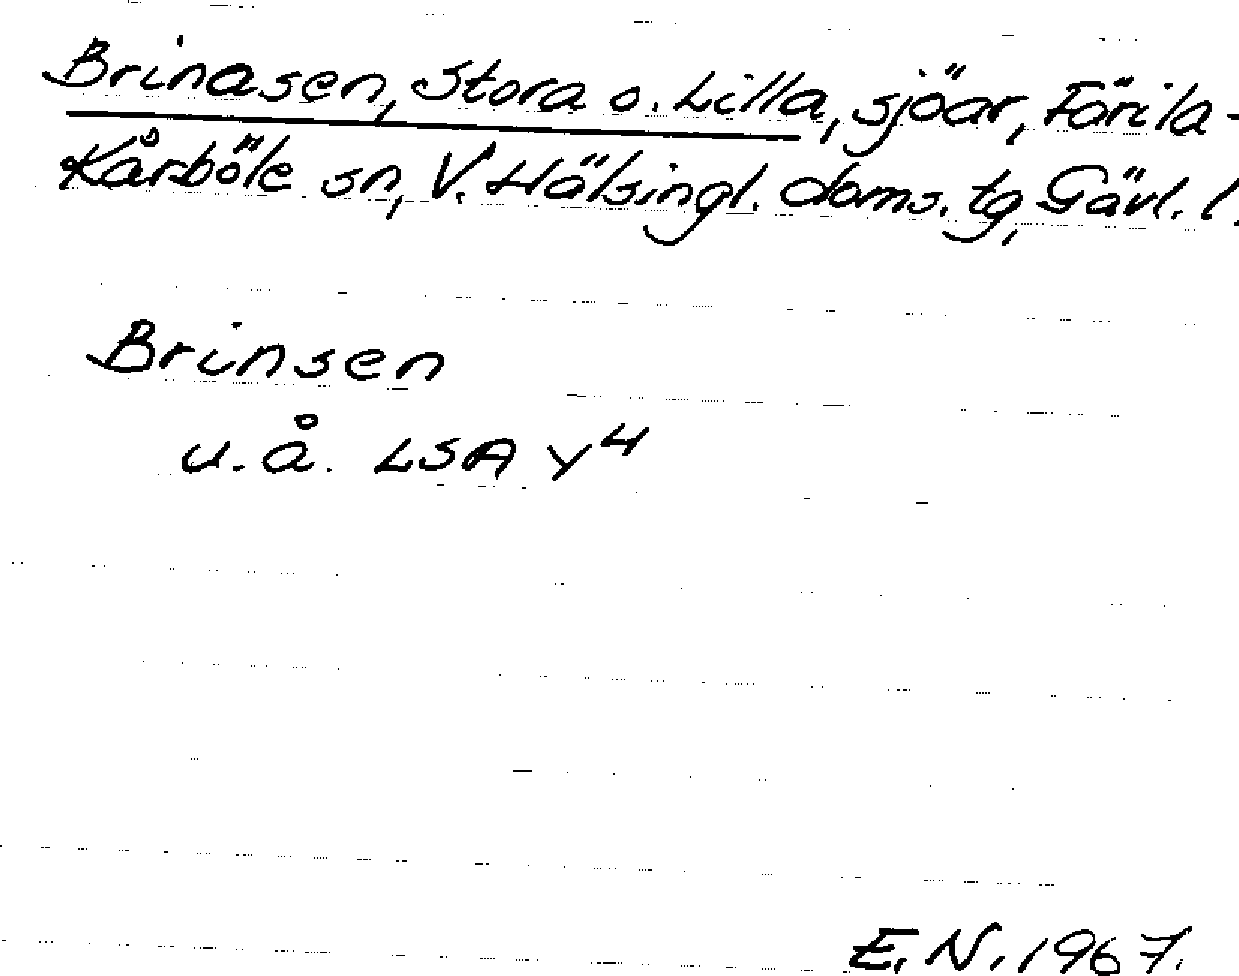 Brinasen, Stora o. Lilla, sjöar, Färila-
Kårböle sn, V. Hälsingl. doms. tg, Gävl. l.
Brinsen
u.å. LSA Y4
E.N. 1967.